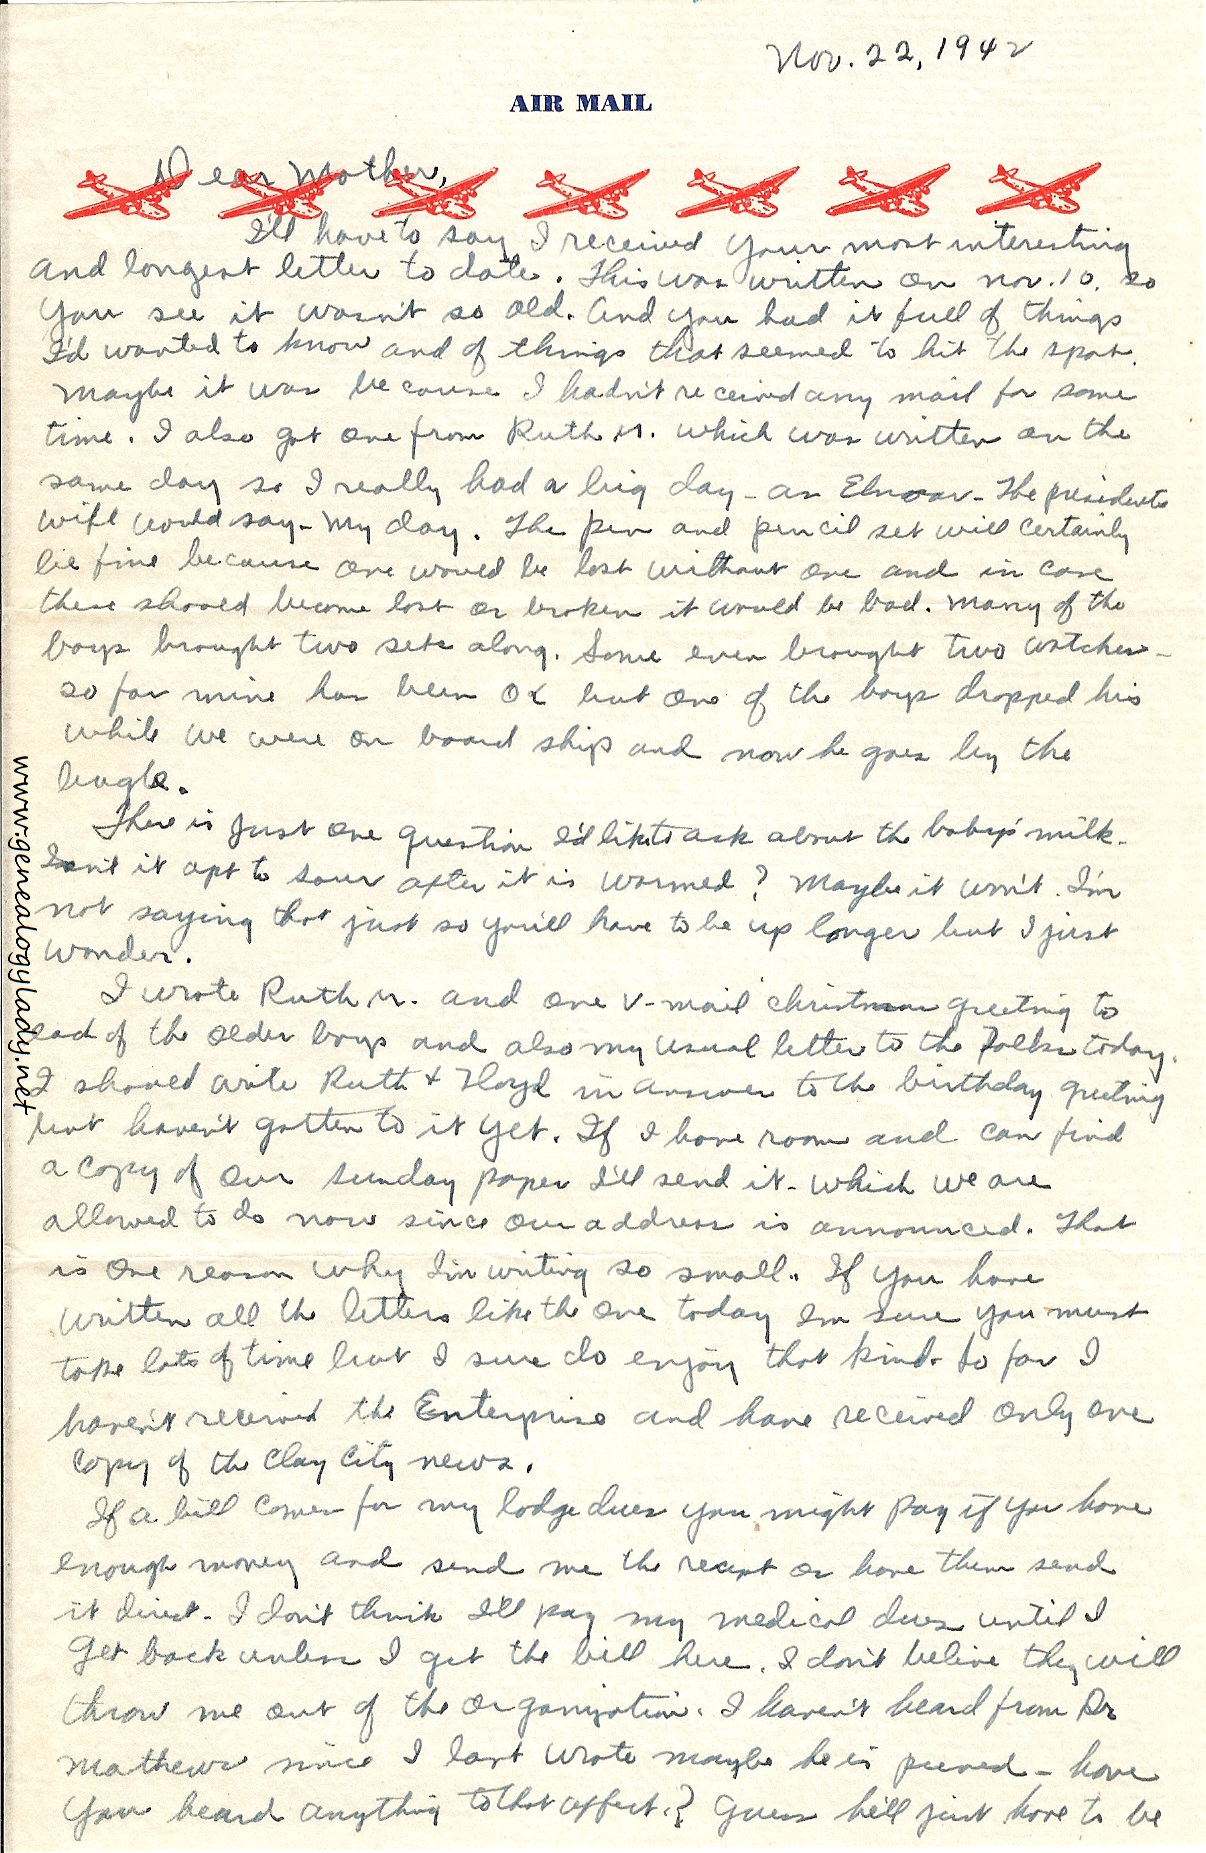 Nov. 22, 1942
AIR MAIL
Dear Mother,
I'll have to say I received your most interesting
and longest letter to date. This was written on Nov. 10. so
you see it wasn't so old. And you had it full of things
I'd wanted to know and of things that seemed to hit the spot.
Maybe it was because I hadn't received any mail for some
time. I also got one from Ruth M. which was written on the
same day so I really had a big day - as Elnoar - The presidents
wife would say - My day. The pen and pencil set will certainly
be fine because one would be lost without one and in case
these should become lost or broken it would be bad. Many of the
boys brought two sets along. Some even brought two watches -
so far mine has been OK but one of the boys dropped his
while we were on board ship and now he goes by the
bugle.
There is just one question I'd like to ask about the baby's milk.
Isn't it apt to sour after it is warmed? Maybe it won't. I'm
not saying that just so you'll have to be up longer but I just
wonder.
I wrote Ruth M. and one V-mail christmas greeting to
each of the older boys and also my usual letter to the Folks today.
I should write Ruth & Floyd in answer to the birthday greeting
but haven't gotten to it yet. If I have room and can find
a copy of our Sunday paper I'll send it - which we are
allowed to do now since our address is announced. That
is one reason why I'm writing so small. If you have
written all the letters like the one today I'm sure you must
take lots of time but I sure do enjoy that kind. So far I
haven't received the Enterprise and have received only one
copy of the Clay City news.
If a bill comes for my lodge dues you might pay if you have
enough money and send me the recipt or have them send
it direct. I don't think I'll pay my medical dues until I
get back unless I get the bill here. I don't belive they will
throw me out of the organization. I haven't heard from Dr
Mathews since I last wrote maybe he is peeved - have
you heard anything to that affect.? Guess he'll just have to be
www.genealogylady.net